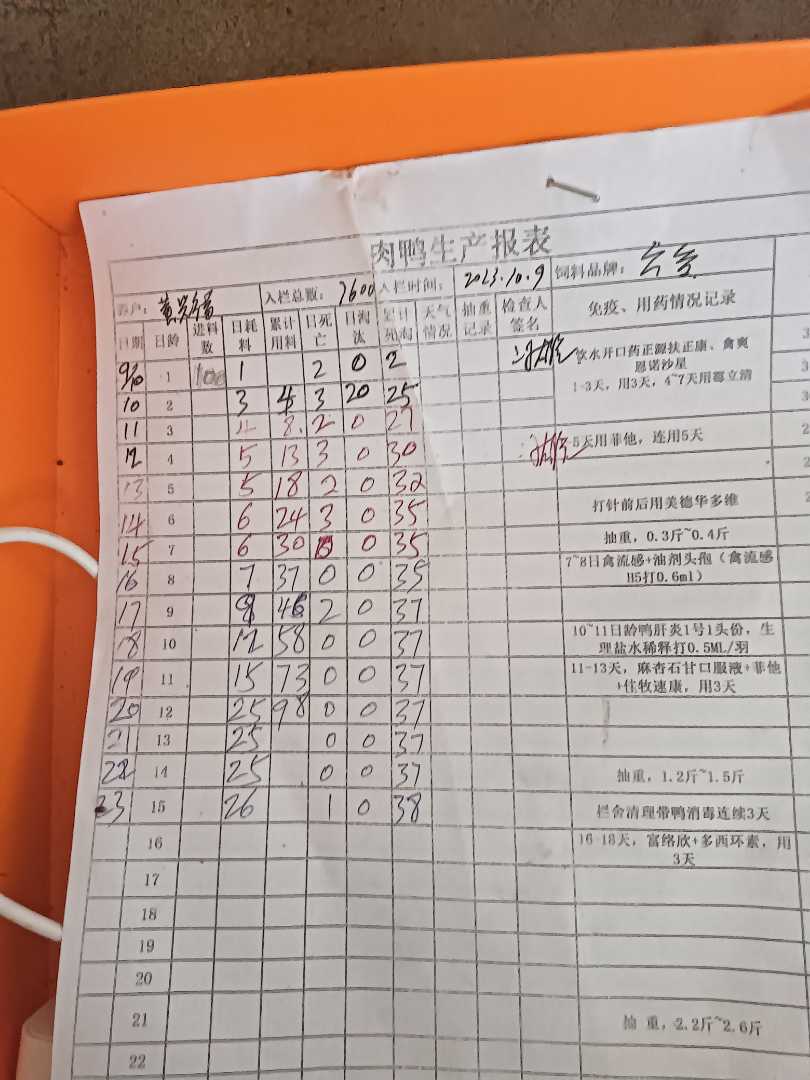 肉鸭生产报表
养户： 入栏总数： 7600 入栏时间： 2023.10.9 饲料品牌：
日期 日龄 进料数 日耗料 累计用料 日死亡 日淘汰 累计死淘 天气情况 抽重记录 检查人签名 免疫、用药情况记录
9/10 1 100 1 2 0 2 饮水开口药正源扶正康、禽爽
恩诺沙星
1-3天，用3天，4~7天用霉立清
10 2 3 4 3 20 25
11 3 4 8 2 0 27
12 4 5 13 3 0 30 5天用菲他，连用5天
13 5 5 18 2 0 32
14 6 6 24 3 0 35 打针前后用美德华多维
15 7 6 30 0 35 抽重，0.3斤~0.4斤
16 8 7 37 0 0 35 7~8日禽流感+油剂头孢（禽流感
H5打0.6ml）
17 9 46 2 0 37
18 10 12 58 0 0 37 10~11日龄鸭肝炎1号1头份，生
理盐水稀释打0.5ML/羽
19 11 15 73 0 0 37 11-13天，麻杏石甘口服液+菲他
+佳牧速康，用3天
20 12 25 98 0 0 37
21 13 25 0 0 37
22 14 25 0 0 37 抽重，1.2斤~1.5斤
23 15 26 1 0 38 栏舍清理带鸭消毒连续3天
16 16-18天，富络欣+多西环素，用
3天
17
18
19
20
21 抽重，2.2斤~2.6斤
22